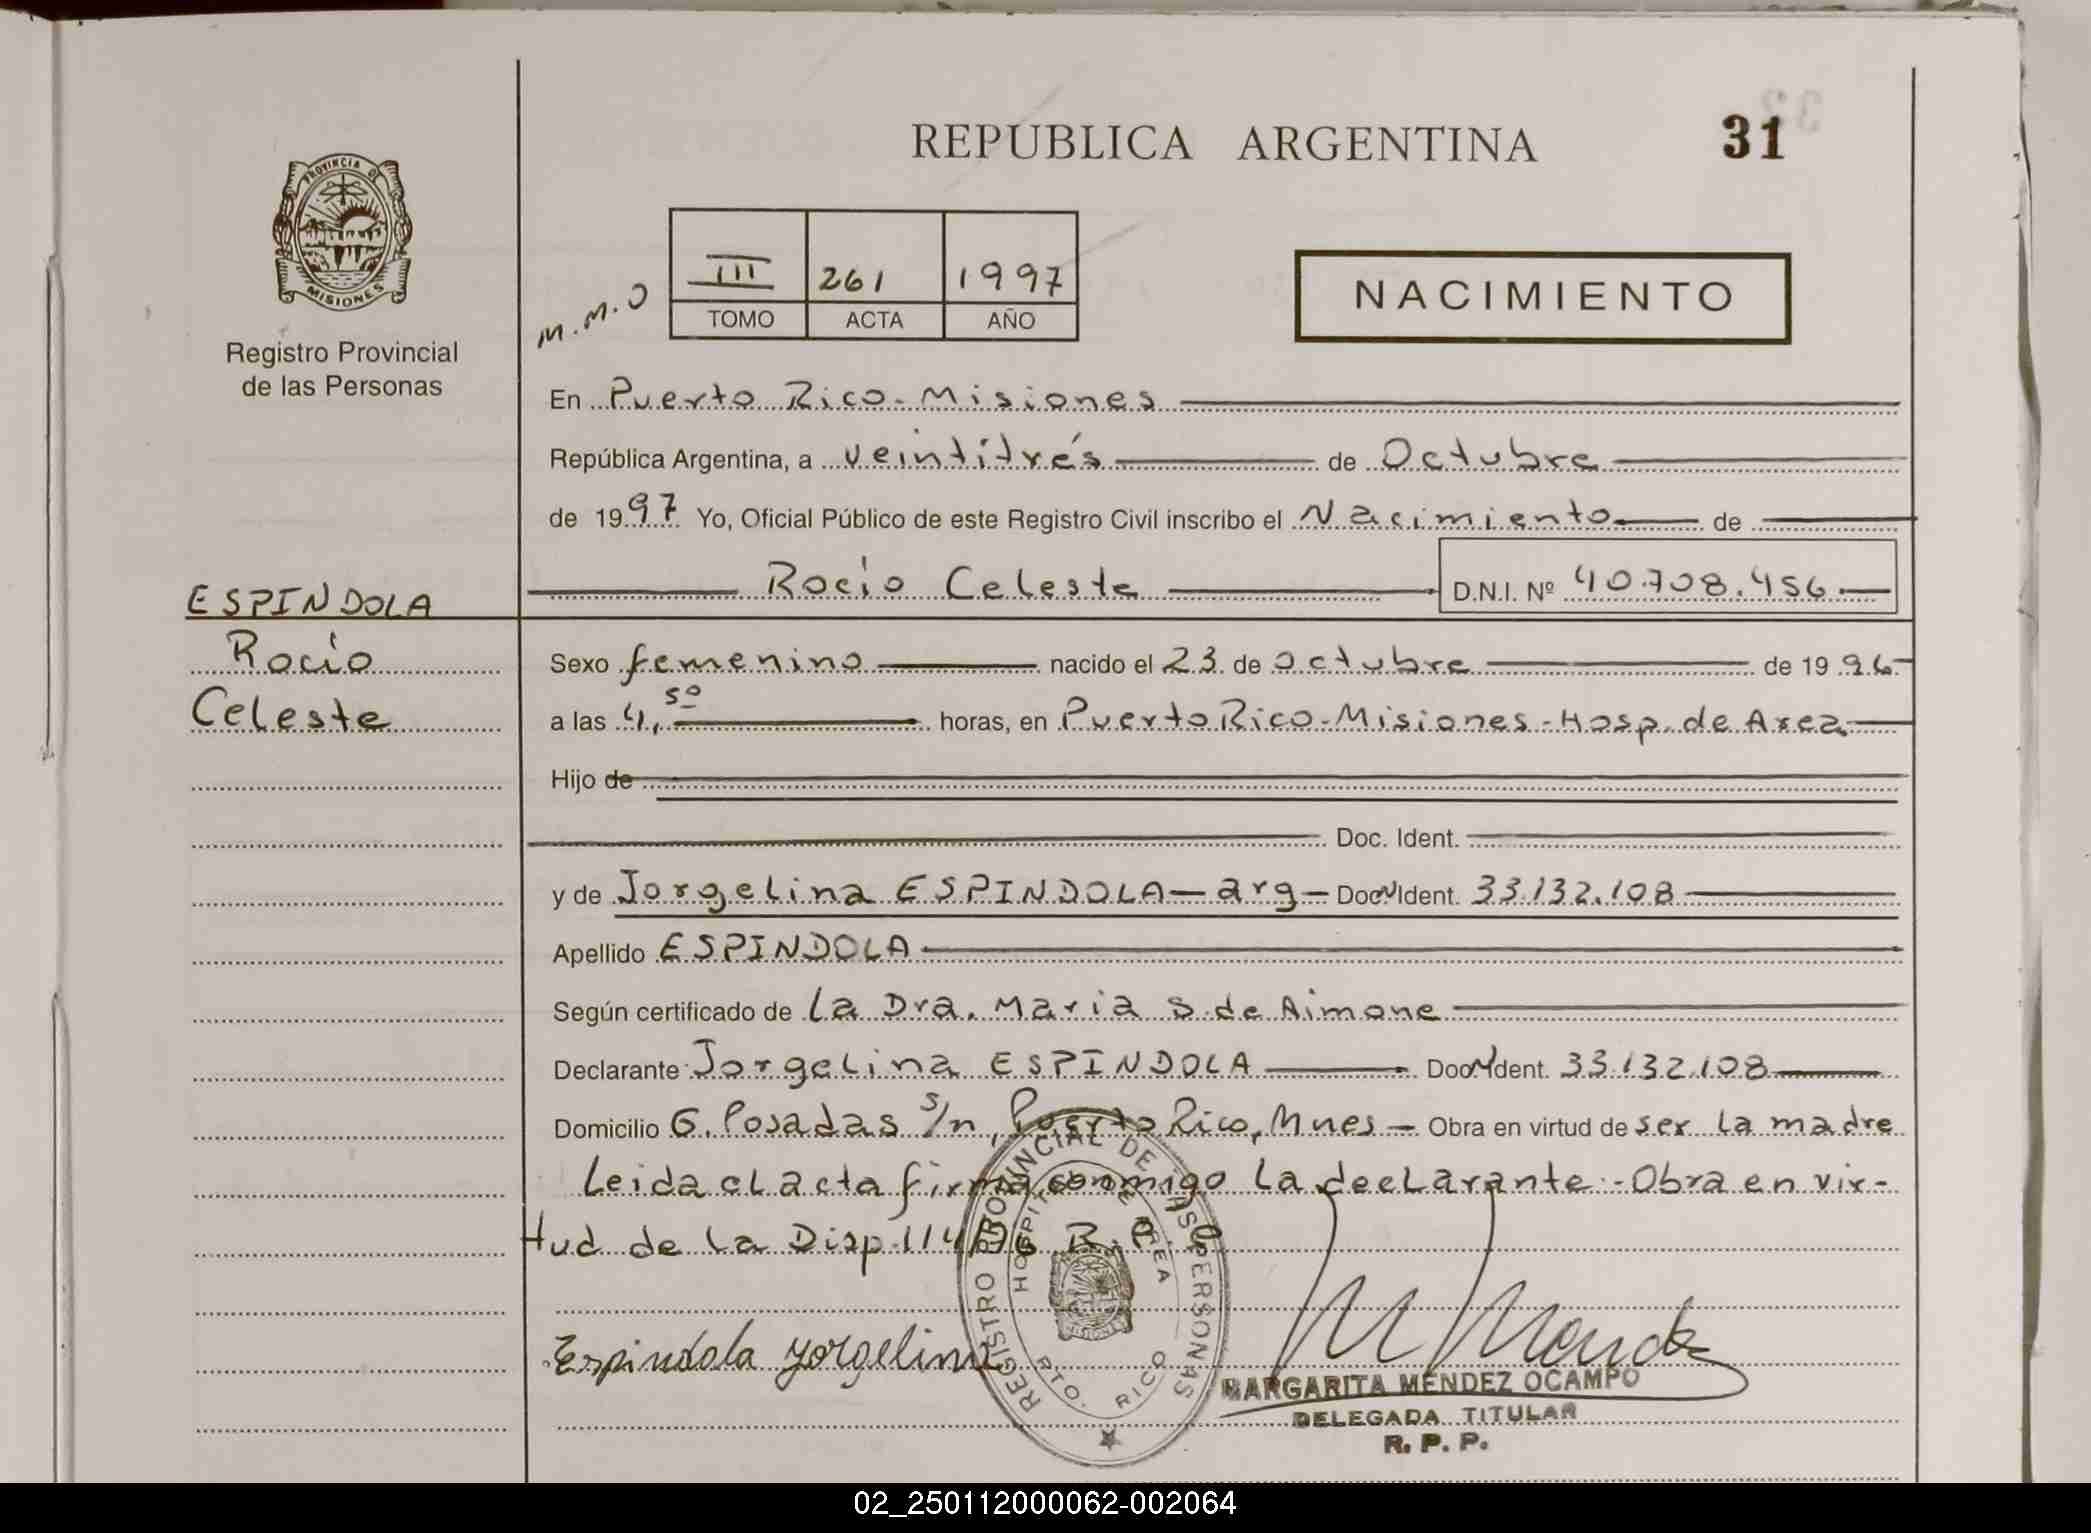 REPUBLICA ARGENTINA
31
PROVINCIA DE
MISIONES
Registro Provincial
de las Personas
M.M.O
III 261 1997
TOMO ACTA AÑO
NACIMIENTO
En Puerto Rico - Misiones
República Argentina, a veintitrés de Octubre
de 1997 Yo, Oficial Público de este Registro Civil inscribo el Nacimiento de
Rocío Celeste D.N.I. Nº 40.708.456
ESPINDOLA
Rocío
Celeste
Sexo femenino nacido el 23 de octubre de 1996
a las 4,50 horas, en Puerto Rico - Misiones - Hosp. de Area
Hijo de
Doc. Ident.
y de Jorgelina ESPINDOLA - arg - Doc. Ident. 33.132.108
Apellido ESPINDOLA
Según certificado de la Dra. Maria S. de Aimone
Declarante Jorgelina ESPINDOLA Doc. Ident. 33.132.108
Domicilio G. Posadas s/n, Puerto Rico, Mnes - Obra en virtud de ser la madre
Leida el acta firma conmigo la declarante - Obra en vir-
tud de la Disp. 114/96 R.P.P.
Espindola Jorgelina
REGISTRO PROVINCIAL DE LAS PERSONAS
HOSPITAL DE AREA
PTO. RICO
M Mendez
MARGARITA MENDEZ OCAMPO
DELEGADA TITULAR
R. P. P.
02_250112000062-002064